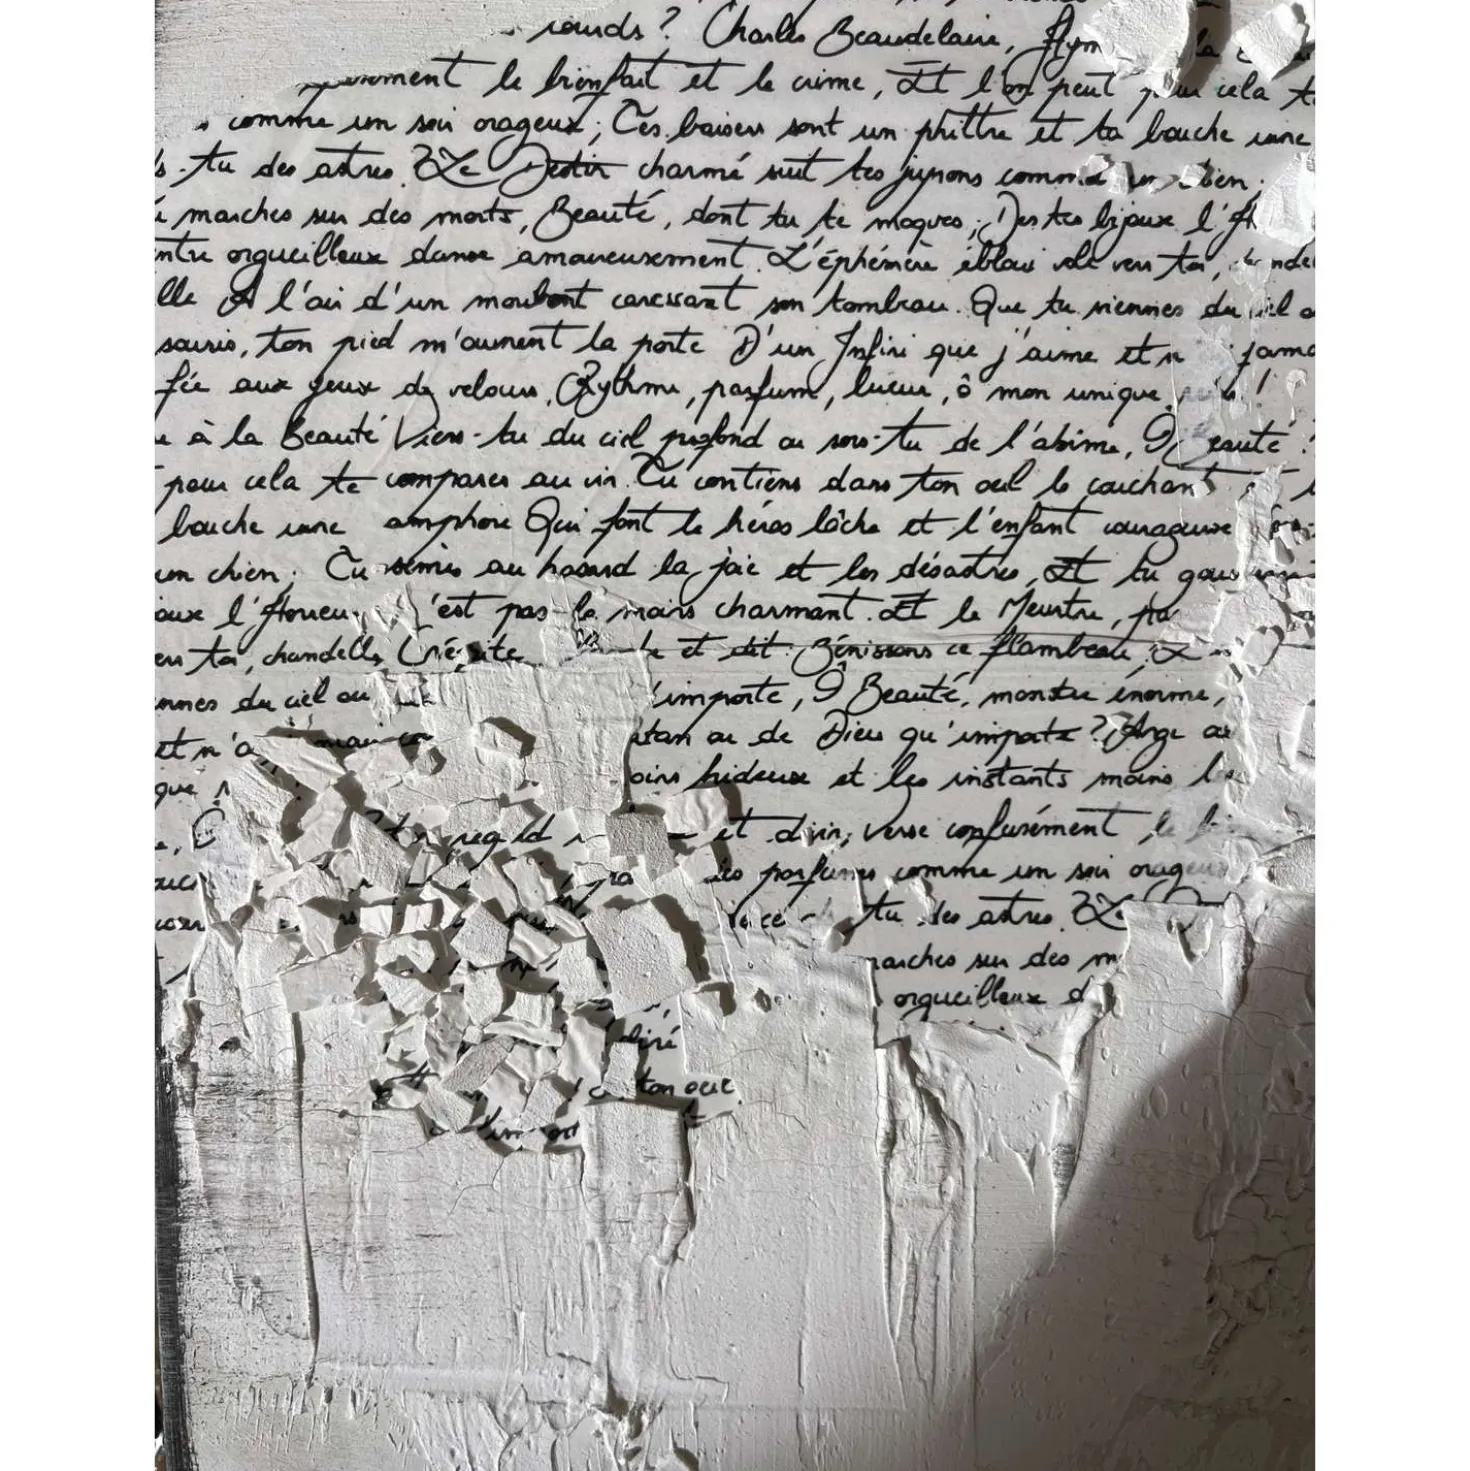 ? Charles Beaudelaire,
le bienfait et le crime, Et l'on peut pour cela
comme un soir orageux; Tes baisers sont un philtre et ta bouche une
tu des astres? Le Destin charmé suit tes jupons comme un chien;
marches sur des morts, Beauté, dont tu te moques; De tes bijoux l'
orgueilleux danse amoureusement. L'éphémère ébloui vole vers toi,
lle A l'air d'un moribond caressant son tombeau. Que tu viennes du ciel o
souris, ton pied m'ouvrent la porte D'un Infini que j'aime et n jama
fée aux yeux de velours, Rythme, parfum, lueur, ô mon unique
à la Beauté Viens-tu du ciel profond ou sors-tu de l'abîme, Ô eauté?
pour cela te comparer au vin. Tu contiens dans ton oeil le couchant
bouche une amphore Qui font le héros lâche et l'enfant courageux
un chien; Tu sèmes au hasard la joie et les désastres, Et tu gouv
oux l'Horreu 'est pas le moins charmant. Et le Meurtre, pa
ers toi, chandelle, Crépite et dit: Bénissons ce flambeau,
ennes du ciel ou 'importe, Ô Beauté, monstre énorme,
et n'a mais atan ou de Dieu qu'importe? Ange ou
que oins hideux et les instants moins l
et divin, verse confusément le
des parfums comme un soir orageux
tu des astres? Le
marches sur des m
orgueilleux d
ton oeil